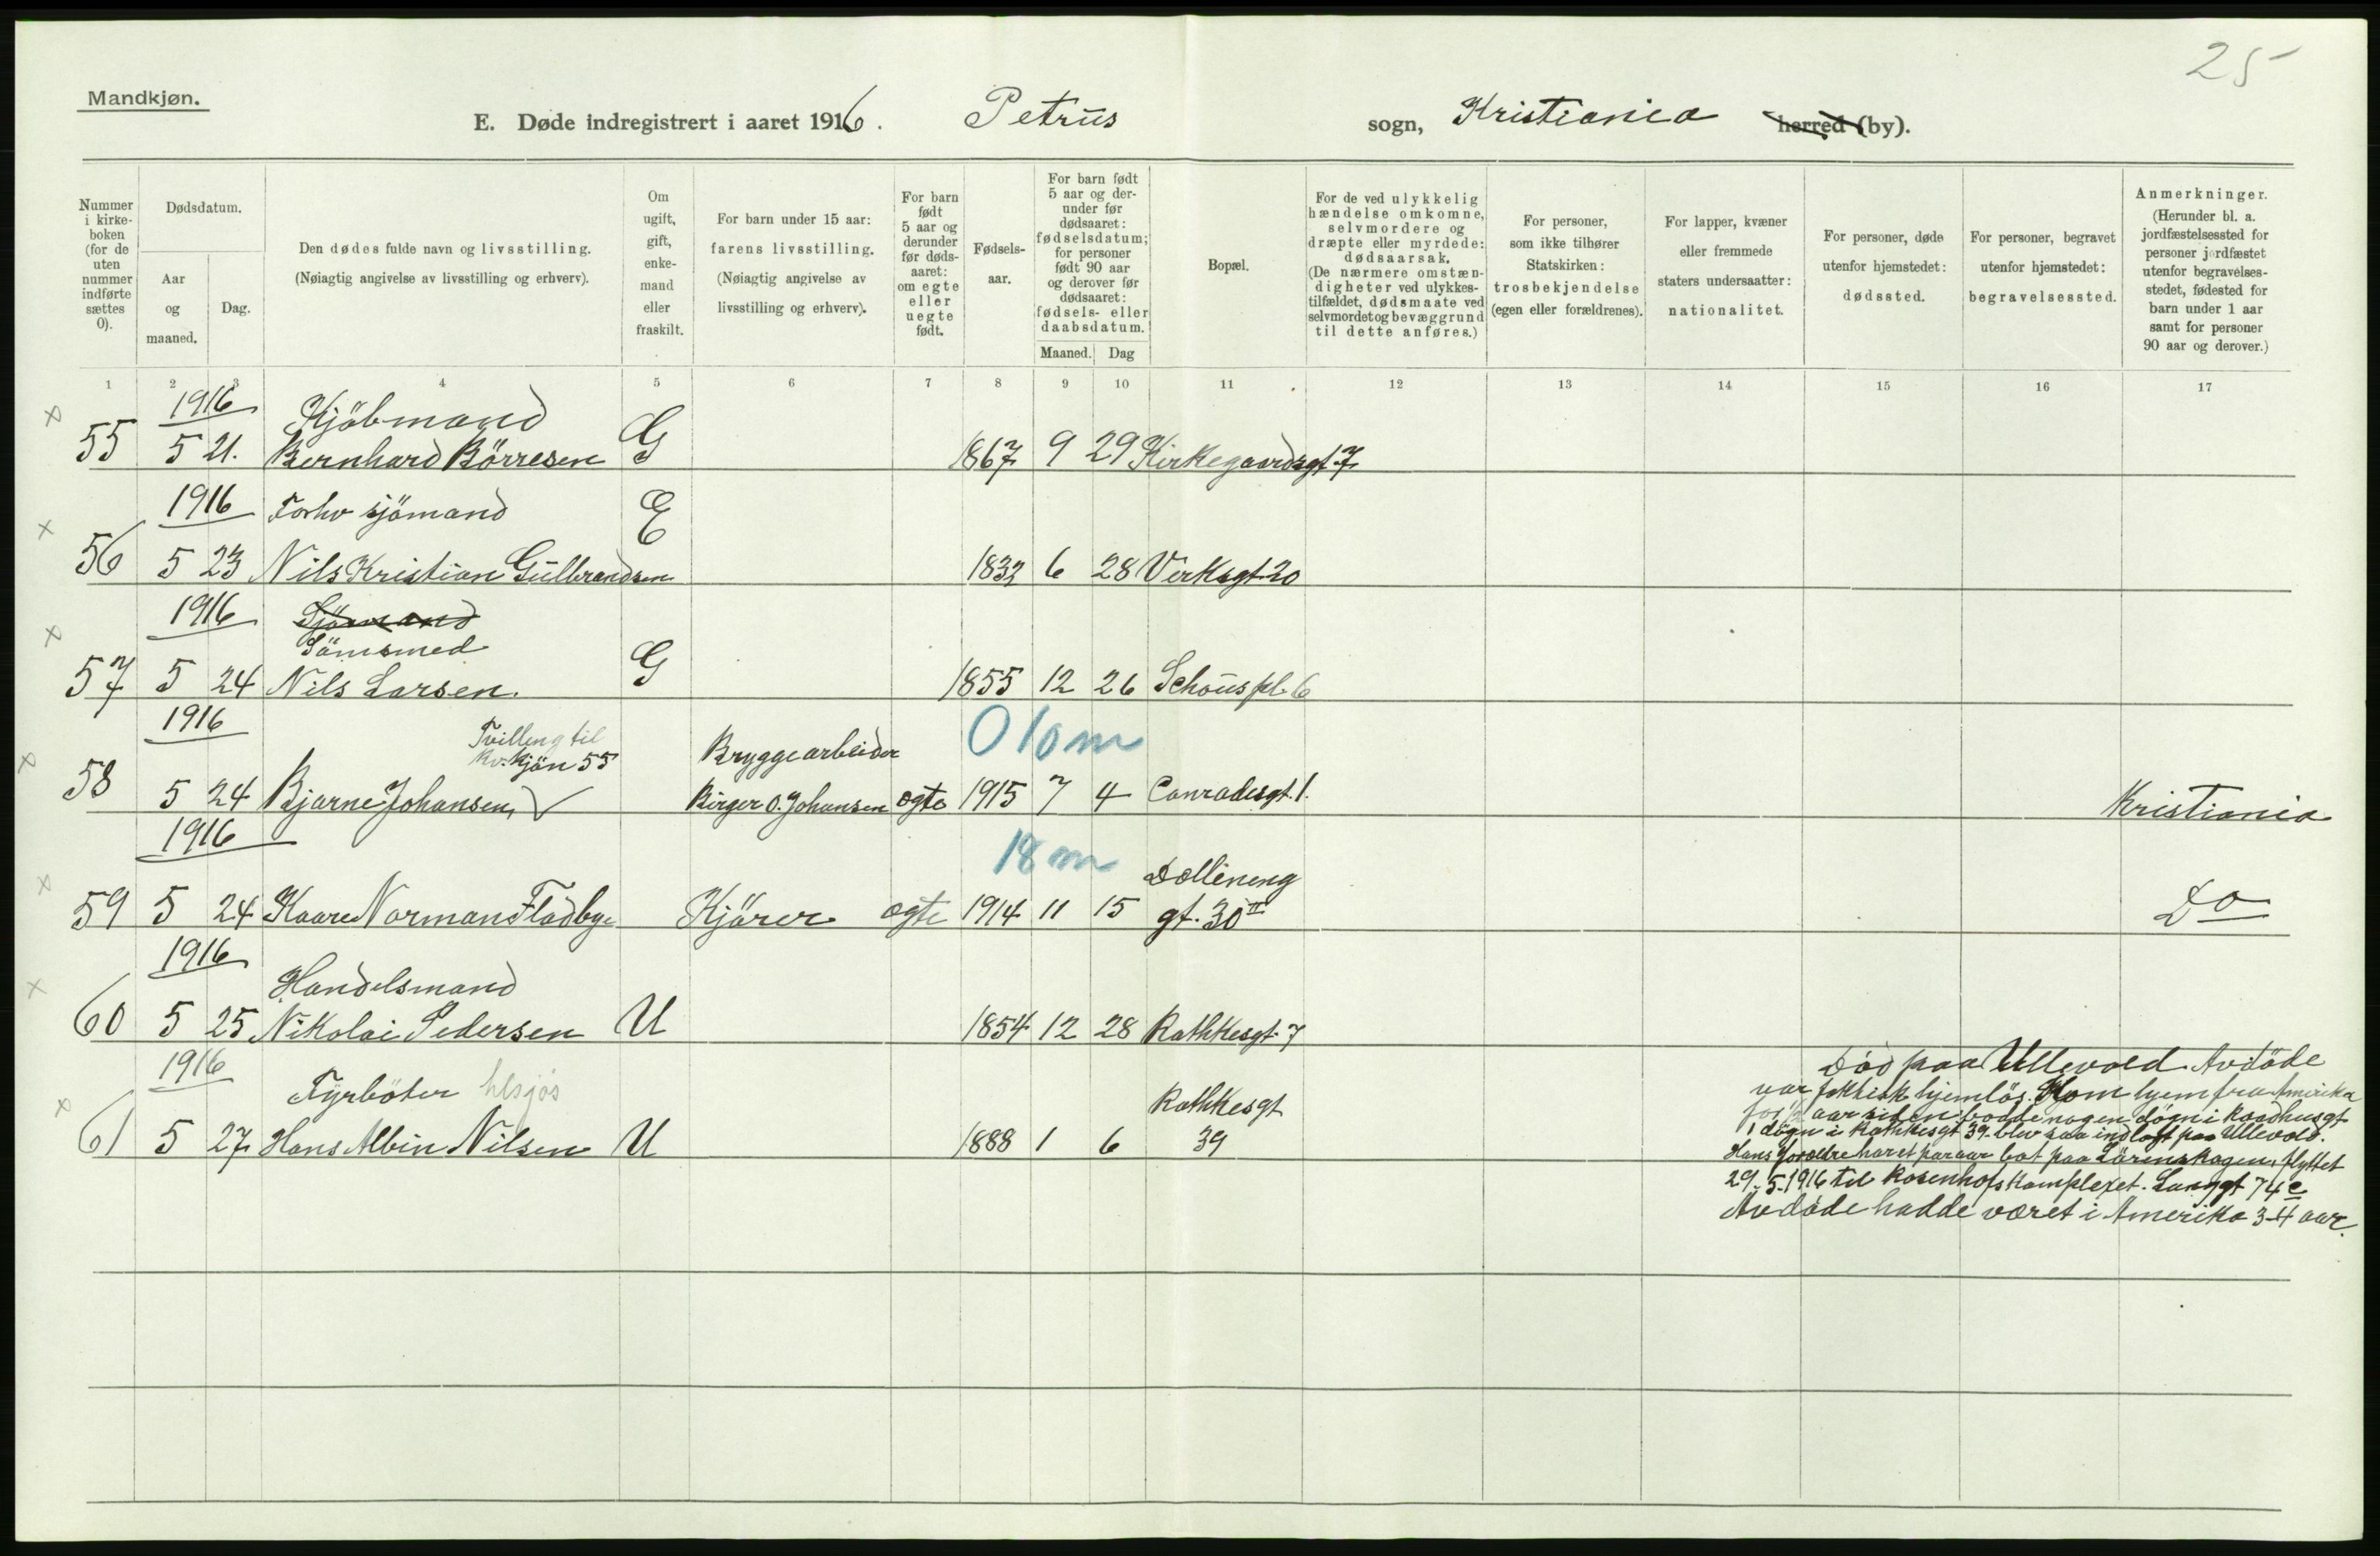 25
Mandkjøn.
E. Døde indregistrert i aaret 1916. Petrus sogn, Kristiania herred (by).
Nummer i kirkeboken (for de uten nummer indførte sættes 0).
Dødsdatum.
Aar og maaned.
Dag.
Den dødes fulde navn og livsstilling.
(Nøiagtig angivelse av livsstilling og erhverv).
Om ugift, gift, enkemand eller fraskilt.
For barn under 15 aar: farens livsstilling.
(Nøiagtig angivelse av livsstilling og erhverv).
For barn født 5 aar og derunder før dødsaaret: om egte eller uegte født.
Fødselsaar.
For barn født 5 aar og derunder før dødsaaret: fødselsdatum; for personer født 90 aar og derover før dødsaaret: fødsels- eller daabsdatum.
Maaned. Dag
Bopæl.
For de ved ulykkelig hændelse omkomne, selvmordere og dræpte eller myrdede: dødsaarsak.
(De nærmere omstændigheter ved ulykkestilfældet, dødsmaate ved selvmordet og bevæggrund til dette anføres.)
For personer, som ikke tilhører Statskirken: trosbekjendelse (egen eller forældrenes).
For lapper, kvæner eller fremmede staters undersaatter: nationalitet.
For personer, døde utenfor hjemstedet: dødssted.
For personer, begravet utenfor hjemstedet: begravelsessted.
Anmerkninger.
(Herunder bl. a. jordfæstelsessted for personer jordfæstet utenfor begravelsesstedet, fødested for barn under 1 aar samt for personer 90 aar og derover.)
1 2 3 4 5 6 7 8 9 10 11 12 13 14 15 16 17
1916 Kjöbmand
55 5 21. Bernhard Börresen G 1867 9 29 Kirkegaardsgt. 7
1916 Forhv sjömand E
56 5 23 Nils Kristian Gulbrandsen 1832 6 28 Verksgt. 20
1916 Sjömand
Sömsmed
57 5 24 Nils Larsen. G 1855 12 26 Schous pl. 6
1916 Tvilling til Bryggearbeider 0 10 m
kv. kjön 55
58 5 24 Bjarne Johansen, Birger O. Johansen egte 1915 7 4 Conradsgt. 1. Kristiania
1916 18 m Dælleneng
59 5 24 Kaare Norman Fladbye Kjörer egte 1914 11 15 gt. 30 II Do
1916 Handelsmand
60 5 25 Nikolai Pedersen U 1854 12 28 Rathkesgt. 7
1916 Fyrböter Rathkesgt
61 5 27 Hans Albin Nilsen U 1888 1 6 39
Död paa Ullevold. Avdöde
var faktisk hjemlös. Kom hjem fra Amerika
aar siden bodde nogen dögn i Raadhusgt
1 dögn i Rathkesgt 39. blev saa indlagt paa Ullevold.
Hans forældre har et par aar bot paa Lörenskogen, flyttet
29.-5.-1916 til Rosenhofskomplexet. Langgt 74 c
Avdöde hadde været i Amerika 3-4 aar.